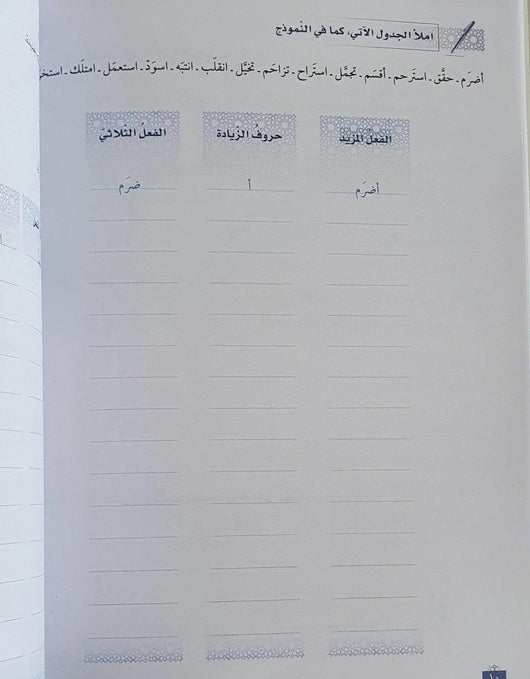 املأ الجدول الآتي، كما في النّموذج
أضرَم ـ حقَّق ـ استَرحم ـ أقسَم ـ تجمَّل ـ استَراح ـ تزاحَم ـ تخيَّل ـ انقلَب ـ انتبَه ـ اسوَدّ ـ استعمَل ـ امتلَك ـ
الفعلُ المَزيدُ
حروفُ الزّيادة
الفعلُ الثّلاثيّ
أضرَم
أ
ضرَم
١٠